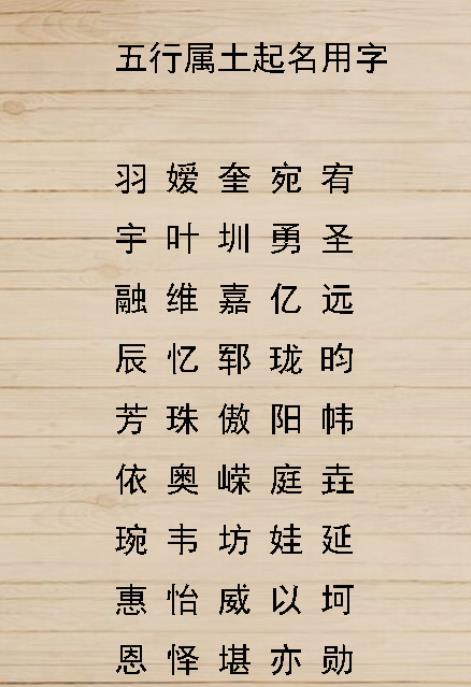 五行属土起名用字
羽 嫒 奎 宛 宥
宇 叶 圳 勇 圣
融 维 嘉 亿 远
辰 忆 郓 珑 昀
芳 珠 傲 阳 帏
依 奥 嵘 庭 垚
琬 韦 坊 娃 延
惠 怡 威 以 坷
恩 怿 堪 亦 勋